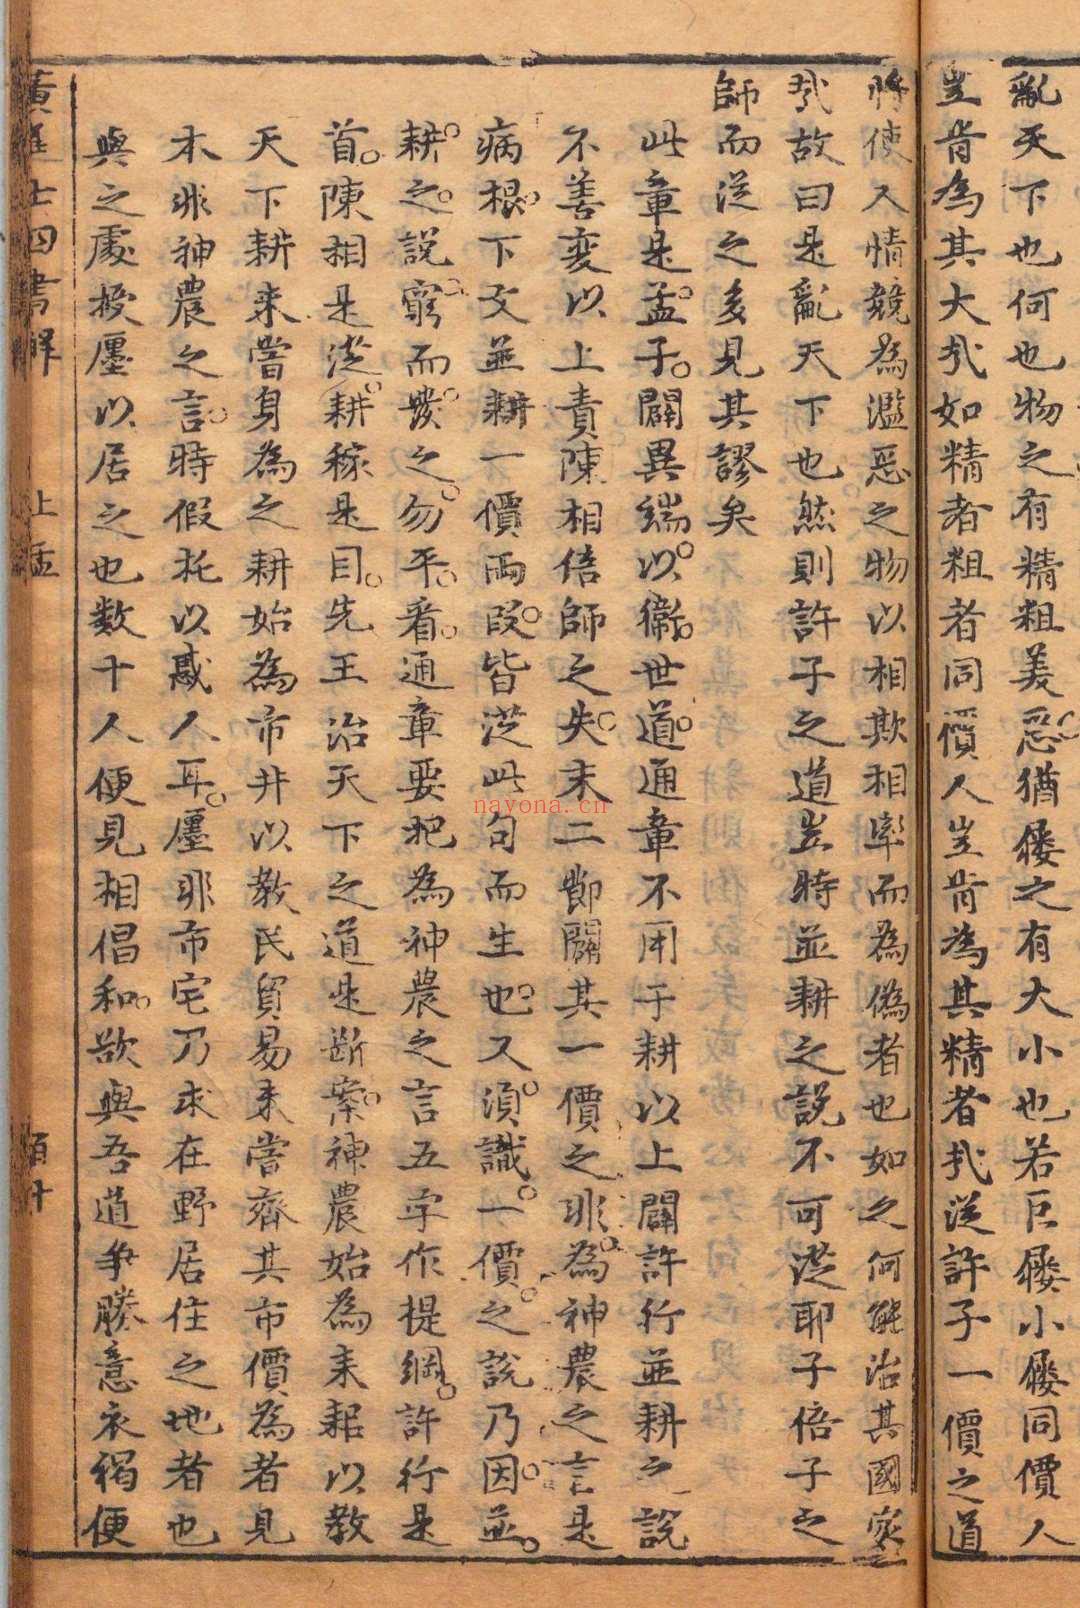 亂天下也何也物之有精粗美惡猶屨之有大小也若巨屨小屨同價人
豈肯為其大㢤如精者粗者同價人豈肯為其精者㢤從許子一價之道
將使人情競為濫惡之物以相欺相率而為偽者也如之何能治其國家
㢤故曰是亂天下也然則許子之道豈特並耕之說不可從耶子倍子之
師而從之多見其謬矣
此章是孟子闢異端以衛世道通章不用于耕以上闢許行並耕之說
不善变以上責陳相倍師之失末二節闢其一價之非為神農之言是
病根下文並耕一價兩段皆從此句而生也又須識一價之說乃因並
耕之說窮而發之勿平看通章要把為神農之言五字作提綱許行是
首陳相是從耕稼是目先王治天下之道是斷案神農始為耒耜以教
天下耕未嘗身為之耕始為市井以教民貿易未嘗齊其市價為者見
本非神農之言時假托以惑人耳廛非市宅乃求在野居住之地者也
與之處授廛以居之也数十人便見相倡和欲與吾道爭勝意衣褐便
黃進士四書解
上孟
nayona.cn